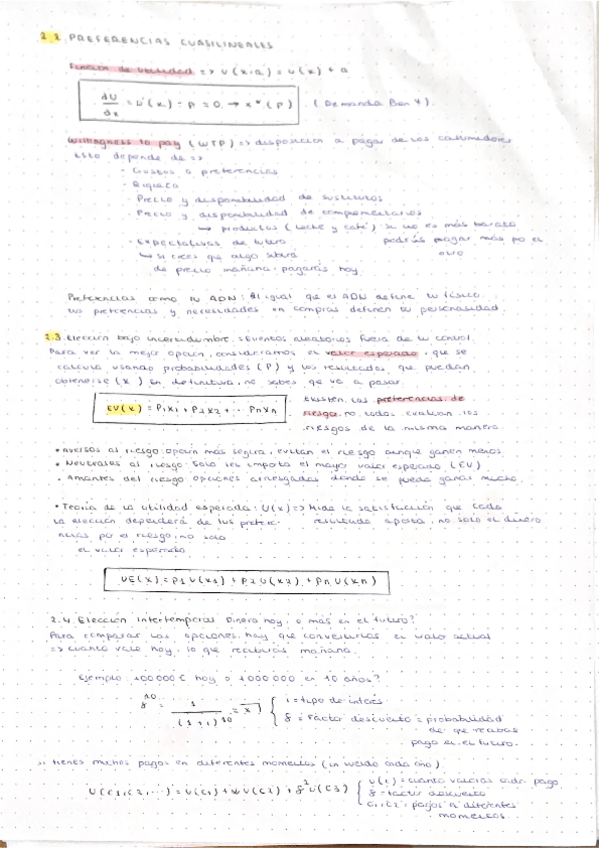 2.2 PREFERENCIAS CUASILINEALES
Función de utilidad => U(x,a) = u(x) + a
dU/dx = u'(x) - p = 0 → x*(p) (Demanda Bien x).
Willingness to pay (WTP) => disposición a pagar de los consumidores
Esto depende de =>
- Gustos o preferencias
- Riqueza
- Precio y disponibilidad de sustitutos
- Precio y disponibilidad de complementarios
↳ productos (leche y café): si uno es más barato
podrás pagar más por el otro
- Expectativas de futuro
↳ si crees que algo subirá
de precio mañana, pagarás hoy
Preferencias como tu ADN: Al igual que el ADN define tu físico,
tus preferencias y necesidades en compras definen tu personalidad.
2.3. Elección bajo incertidumbre: eventos aleatorios fuera de tu control.
Para ver la mejor opción, consideramos el valor esperado, que se
calcula usando probabilidades (P) y los resultados que puedan
obtenerse (x). En definitiva, no sabes que va a pasar.
EV(x) = P1x1 + P2x2 + ... Pnxn
Existen las preferencias de
riesgo, no todos evalúan los
riesgos de la misma manera.
• Aversos al riesgo: opción más segura, evitan el riesgo aunque ganen menos.
• Neutrales al riesgo: Solo les importa el mayor valor esperado (EV)
• Amantes del riesgo: opciones arriesgadas donde se puede ganar mucho.
• Teoría de la utilidad esperada: U(x) => Mide la satisfacción que cada
resultado aporta, no solo el dinero
La elección dependerá de tus preferencias
por el riesgo, no solo
el valor esperado
UE(x) = P1U(x1) + P2U(x2) + PnU(xn)
2.4. Elección intertemporal: Dinero hoy, o más en el futuro?
Para comparar las opciones, hay que convertirlas en valor actual
=> cuanto vale hoy, lo que recibirás mañana.
Ejemplo: 100000€ hoy o 1000000 en 10 años?
δ^10 = 1/(1+i)^10 = x
i = tipo de interés
δ = Factor descuento = probabilidad
de que recibas
pago en el futuro.
Si tienes muchos pagos en diferentes momentos (un sueldo cada año)
U(C1,C2,...) = U(C1) + δU(C2) + δ²U(C3)
U(C) = cuanto valoras cada pago
δ = factor descuento
C1,C2 = pagos en diferentes
momentos